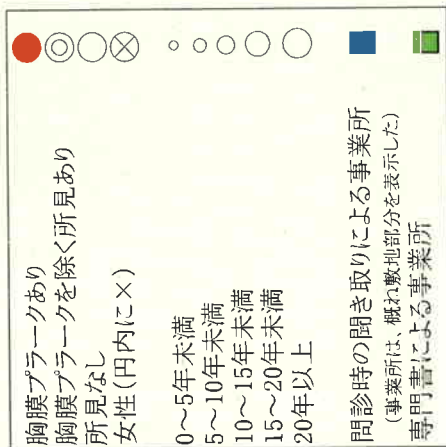 胸膜プラークあり
胸膜プラークを除く所見あり
所見なし
女性(円内に×)
0～5年未満
5～10年未満
10～15年未満
15～20年未満
20年以上
問診時の聞き取りによる事業所
(事業所は、概ね敷地部分を表示した)
専門書による事業所